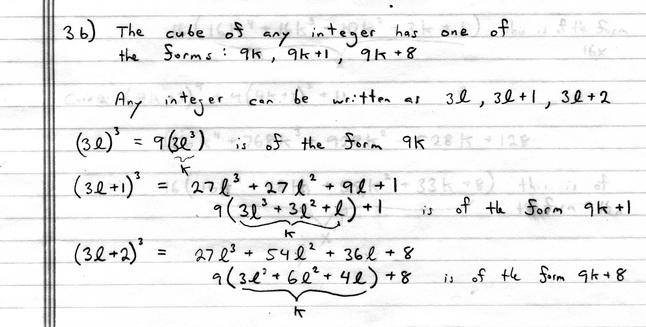 3b) The cube of any integer has one of
the forms: 9k, 9k+1, 9k+8
Any integer can be written as 3l, 3l+1, 3l+2
(3l)³ = 9(3l³) is of the form 9k
k
(3l+1)³ = 27l³ + 27l² + 9l + 1
9(3l³ + 3l² + l) + 1 is of the form 9k+1
k
(3l+2)³ = 27l³ + 54l² + 36l + 8
9(3l³ + 6l² + 4l) + 8 is of the form 9k+8
k